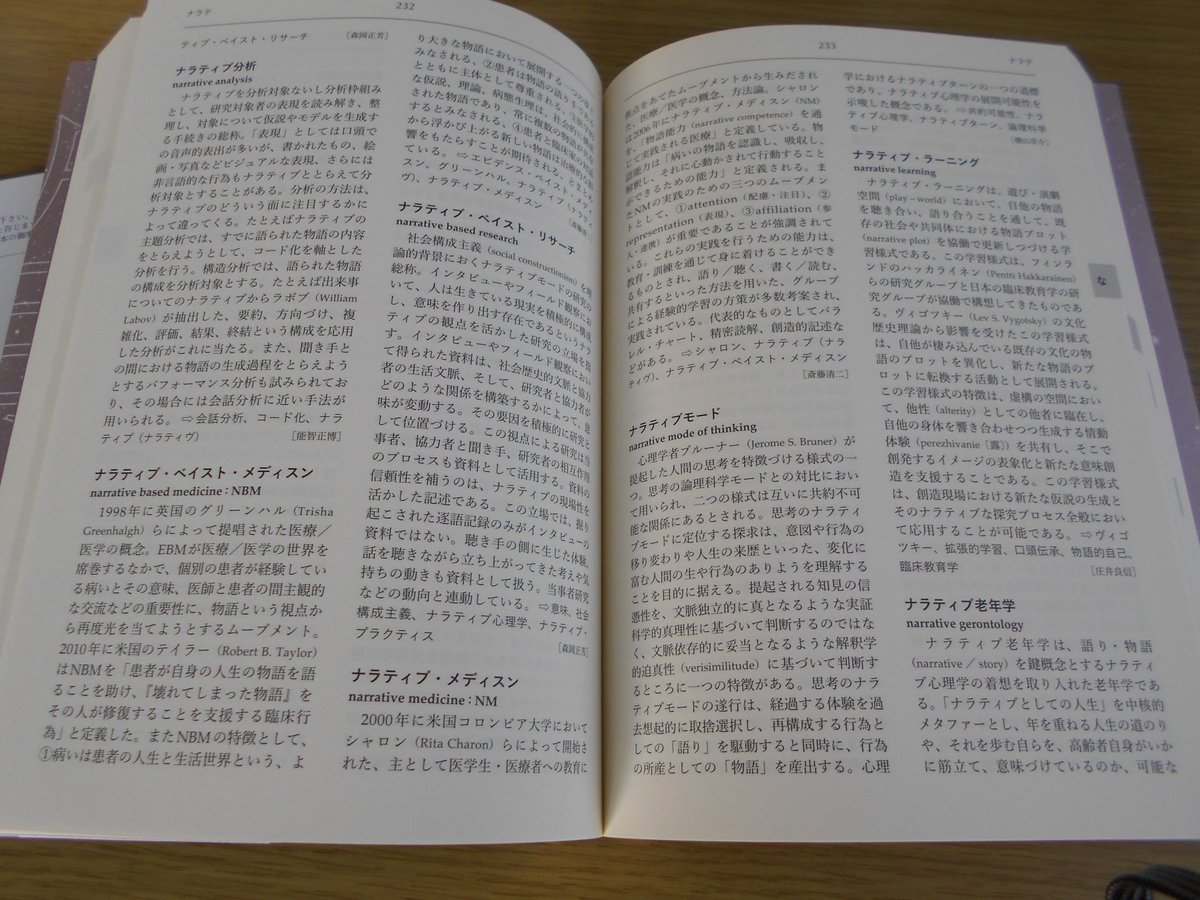 ナラテ
232
ティブ・ベイスト・リサーチ [森岡正芳]
ナラティブ分析
narrative analysis
ナラティブを分析対象ないし分析枠組み
として、研究対象者の表現を読み解き、整
理し、対象について仮説やモデルを生成す
る手続きの総称。「表現」としては口頭で
の音声的表出が多いが、書かれたもの、絵
画・写真などビジュアルな表現、さらには
非言語的な行為もナラティブととらえて分
析対象とすることがある。分析の方法は、
ナラティブのどういう面に注目するかに
よって違ってくる。たとえばナラティブの
主題分析では、すでに語られた物語の内容
をとらえようとして、コード化を軸とした
分析を行う。構造分析では、語られた物語
の構成を分析対象とする。たとえば出来事
についてのナラティブからラボブ (William
Labov) が抽出した、要約、方向づけ、複
雑化、評価、結果、終結という構成を応用
した分析がこれに当たる。また、聞き手と
の間における物語の生成過程をとらえよう
とするパフォーマンス分析も試みられてお
り、その場合には会話分析に近い手法が
用いられる。 ⇨会話分析、コード化、ナラ
ティブ（ナラティヴ） [能智正博]
ナラティブ・ベイスト・メディスン
narrative based medicine : NBM
1998年に英国のグリーンハル (Trisha
Greenhalgh) らによって提唱された医療／
医学の概念。EBMが医療／医学の世界を
席巻するなかで、個別の患者が経験してい
る病いとその意味、医師と患者の間主観的
な交流などの重要性に、物語という視点か
ら再度光を当てようとするムーブメント。
2010年に米国のテイラー (Robert B. Taylor)
はNBMを「患者が自身の人生の物語を語
ることを助け、『壊れてしまった物語』を
その人が修復することを支援する臨床行
為」と定義した。またNBMの特徴として、
①病いは患者の人生と生活世界という、よ
り大きな物語において展開する一つの章と
みなされる、②患者は物語の語り手である
とともに主体として尊重される、③医学的
な仮説、理論、病態生理は、社会的に構成
された物語であり、常に複数の物語が共存
するとみなされる、④患者と臨床家の対話
から浮かび上がる新しい物語は治療的な影
響をもたらすことが期待される、とまとめ
ている。 ⇨エビデンス・ベイスト・メディ
スン、グリーンハル、ナラティブ（ナラティ
ヴ）、ナラティブ・メディスン [斎藤清二]
ナラティブ・ベイスト・リサーチ
narrative based research
社会構成主義 (social constructionism) を理
論的背景におくナラティブモードの研究の
総称。インタビューやフィールド観察にお
いて、人は生きている現実を積極的に構成
し、意味を作り出す存在であるというナラ
ティブの観点を活かした研究の立場を指
す。インタビューやフィールド観察におい
て得られた資料は、社会歴史的文脈と協力
者の生活文脈、そして、研究者と協力者が
どのような関係を構築するかによって、意
味が変動する。その要因を積極的に研究と
して位置づける。この視点による研究は当
事者、協力者と聞き手、研究者の相互作用
のプロセスも資料として活用する。資料の
信頼性を補うのは、ナラティブの現場性を
活かした記述である。この立場では、掘り
起こされた逐語記録のみがインタビューの
資料ではない。聴き手の側に生じた体験、
話を聴きながら立ち上がってきた考えや気
持ちの動きも資料として扱う。当事者研究
などの動向と連動している。 ⇨意味、社会
構成主義、ナラティブ心理学、ナラティブ・
プラクティス [森岡正芳]
ナラティブ・メディスン
narrative medicine : NM
2000年に米国コロンビア大学において
シャロン (Rita Charon) らによって開始さ
れた、主として医学生・医療者への教育に
233
ナラテ
焦点をあてたムーブメントから生みださ
れた、医療／医学の概念、方法論。シャロン
は2006年にナラティブ・メディスン (NM)
を、「物語能力 (narrative competence) を通
じて実践される医療」と定義している。物
語能力は「病いの物語を認識し、吸収し、
解釈し、それに心動かされて行動すること
ができるための能力」と定義される。ま
たNMの実践のための三つのムーブメン
トとして、①attention（配慮・注目）、②
representation（表現）、③affiliation（参
入・連携）が重要であることが強調されて
いる。これらの実践を行うための能力は、
教育・訓練を通じて身に着けることができ
るものとされ、語り／聴く、書く／読む、
共有するといった方法を用いた、グループ
による経験的学習の方策が多数考案され、
実践されている。代表的なものとしてパラ
レル・チャート、精密読解、創造的記述な
どがある。 ⇨シャロン、ナラティブ（ナラ
ティヴ）、ナラティブ・ベイスト・メディスン
[斎藤清二]
ナラティブモード
narrative mode of thinking
心理学者ブルーナー (Jerome S. Bruner) が
提起した人間の思考を特徴づける様式の一
つ。思考の論理科学モードとの対比におい
て用いられ、二つの様式は互いに共約不可
能な関係にあるとされる。思考のナラティ
ブモードに定位する探求は、意図や行為の
移り変わりや人生の来歴といった、変化に
富む人間の生や行為のありようを理解する
ことを目的に据える。提起される知見の信
憑性を、文脈独立的に真となるような実証
科学的真理性に基づいて判断するのではな
く、文脈依存的に妥当となるような解釈学
的迫真性 (verisimilitude) に基づいて判断す
るところに一つの特徴がある。思考のナラ
ティブモードの遂行は、経過する体験を過
去想起的に取捨選択し、再構成する行為と
しての「語り」を駆動すると同時に、行為
の所産としての「物語」を産出する。心理
学におけるナラティブターンの一つの道標
であり、ナラティブ心理学の展開可能性を
示唆した概念である。 ⇨共約可能性、ナラ
ティブ心理学、ナラティブターン、論理科学
モード [横山草介]
ナラティブ・ラーニング
narrative learning
ナラティブ・ラーニングは、遊び・演劇
空間 (play–world) において、自他の物語
を聴き合い、語り合うことを通して、既
存の社会や共同体における物語プロット
(narrative plot) を協働で更新しつづける学
習様式である。この学習様式は、フィンラ
ンドのハッカライネン (Pentti Hakkarainen)
らの研究グループと日本の臨床教育学の研
究グループが協働で構想してきたものであ
る。ヴィゴツキー (Lev S. Vygotsky) の文化
歴史理論から影響を受けたこの学習様式
は、自他が棲み込んでいる既存の文化の物
語のプロットを異化し、新たな物語のプ
ロットに転換する活動として展開される。
この学習様式の特徴は、虚構の空間におい
て、他性 (alterity) としての他者に臨在し、
自他の身体を響き合わせつつ生成する情動
体験 (perezhivanie〔露〕) を共有し、そこで
創発するイメージの表象化と新たな意味創
造を支援することである。この学習様式
は、創造現場における新たな仮説の生成と
そのナラティブな探究プロセス全般におい
て応用することが可能である。 ⇨ヴィゴ
ツキー、拡張的学習、口頭伝承、物語的自己、
臨床教育学 [庄井良信]
ナラティブ老年学
narrative gerontology
ナラティブ老年学は、語り・物語
(narrative／story) を鍵概念とするナラティ
ブ心理学の着想を取り入れた老年学であ
る。「ナラティブとしての人生」を中核的
メタファーとし、年を重ねる人生の道のり
や、それを歩む自らを、高齢者自身がいか
に筋立て、意味づけているのか、可能な
な